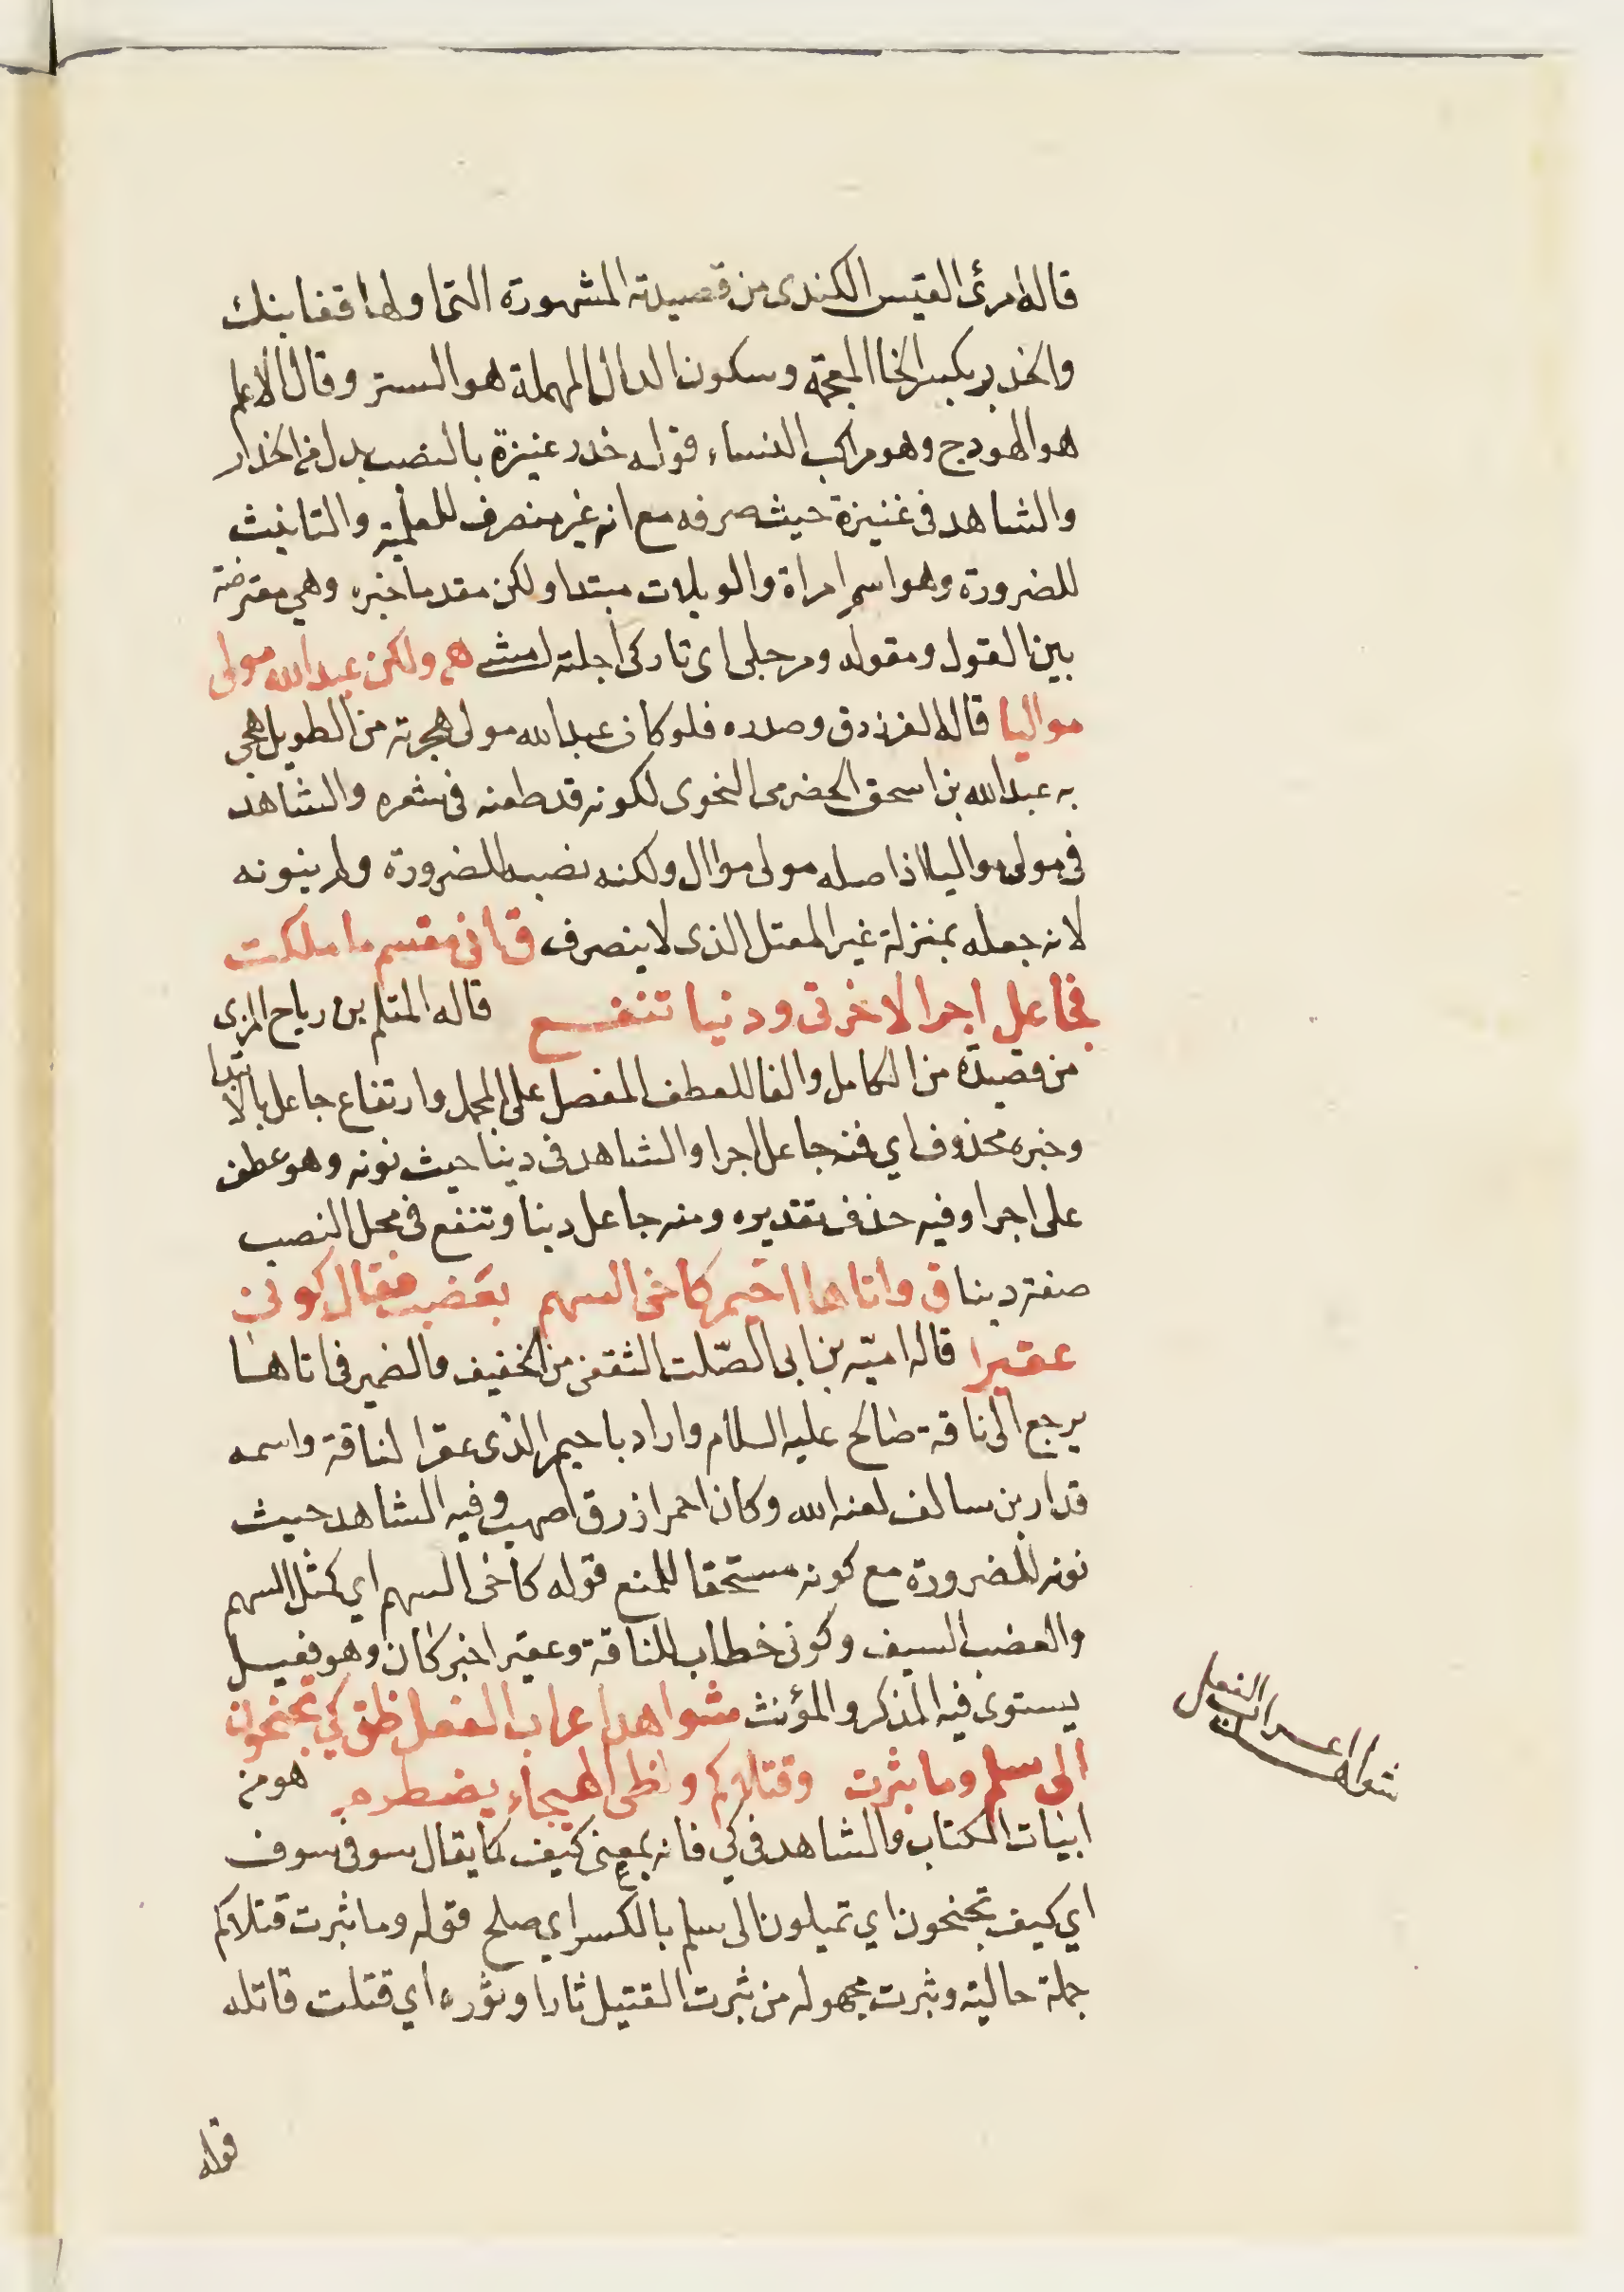 قاله امرئ القيس الكندى من قصيدته المشهورة التى اولها قفا نبك
والخدر بكسر الخا المعجمة وسكون الدال المهملة هو الستر وقال الاعلم
هو الهودج وهو مراكب النساء قوله خدر عنيزة بالنصب بدل من الخدار
والشاهد فى عنيزة حيث صرفه مع انه غير منصرف للعلمية والتانيث
للضرورة وهو اسم امراة والويلات مبتدا ولكن مقدما خبره وهى معترضة
بين القول ومقوله ومرجلى اى تاركى اجلته لمشى هم ولكن عبد الله مولى
مواليا قاله الفرزدق وصدره فلو كان عبد الله مولى هجرته من الطويل هجى
به عبد الله بن اسحق الحضرمى النحوى لكونه قد طعنه فى شعره والشاهد
فى مولى مواليا اذ اصله مولى موال ولكنه نصبه للضرورة ولم ينونه
لانه جعله بمنزلة غير المعتل الذى لا ينصرف ق انى مقسم ما ملكت
فجاعل اجرا لاخرتى ودنيا تنفع قاله المثلم بن رياح المرى
من قصيدة من الكامل والفا للعطف المفصل على المجمل وارتفاع جاعل بالابتدا
وخبره محذوف اي فمنه جاعل اجرا والشاهد فى دينا حيث نونه وهو عطف
على اجرا وفيه حذف تقديره ومنه جاعل دينا وتنفع فى محل النصب
صفة دينا ق واتاها احيمر كاخى السهم بعضب فقال كونى
عقيرا قاله اميّه بن ابى الصّلت الثقفى من الخفيف والضمير فى اتاها
يرجع الى ناقة صالح عليه السلام واراد باحيمر الذى عقر الناقة واسمه
قدار بن سالف لعنه الله وكان احمر ازرق اصهب وفيه الشاهد حيث
نونه للضرورة مع كونه مستحقا للمنع قوله كاخى السهم اي كمثل السهم
والعضب السيف وكونى خطاب للناقة وعقيرا خبر كان وهو فعيل
يستوى فيه المذكر والمؤنث شواهد اعراب الفعل ظق كي تجنحون
الى سلم وما ثئرت وقتلاكم ولظى الهيجاء يضطرم هو من
ابيات الكتاب والشاهد فى كي فانه بمعنى كيف كما يقال سو فى سوف
اي كيف تجنحون اي تميلون الى سلم بالكسر اي صلح قوله وما ثئرت قتلاكم
جملة حالية وثئرت مجهوله من ثئرت القتيل ثارا وثوره اي قتلت قاتله
شواهد اعراب الفعل
قوله